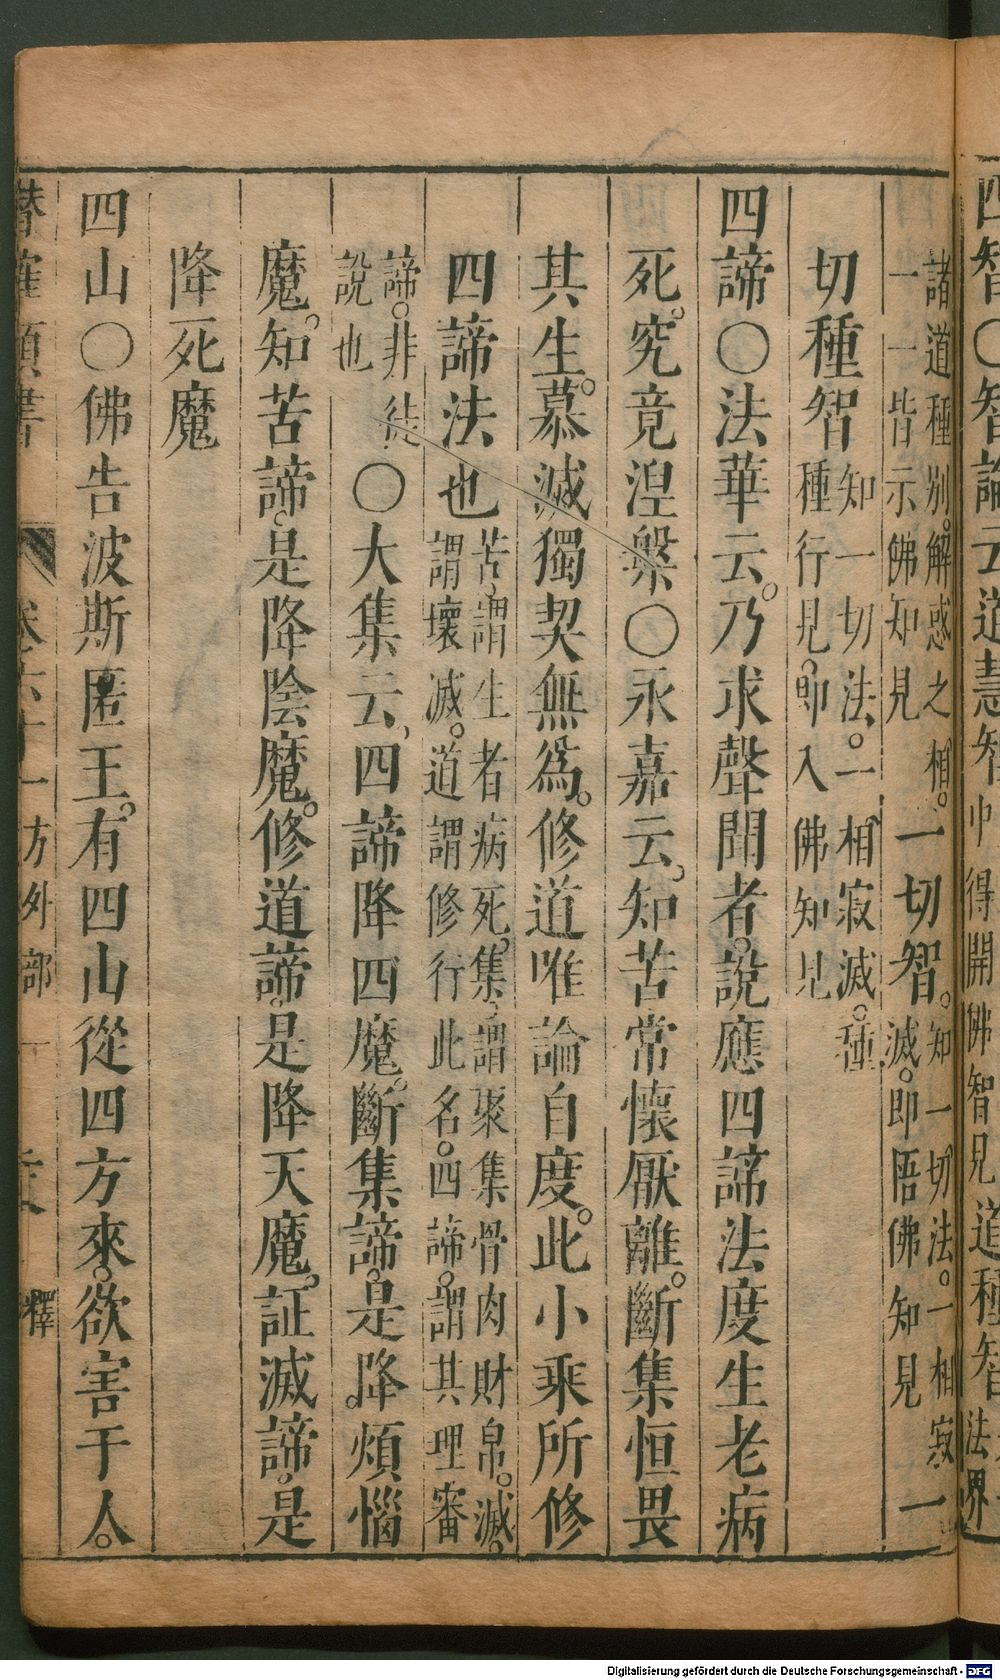 四智〇智論云道慧智中得開佛智見道種智法界
諸道種別。解惑之相。一切智。知一切法。一相寂
一一皆示佛知見滅。即悟佛知見一
切種智知一切法。一相寂滅。種
種行見。即入佛知見
四諦〇法華云。乃求聲聞者。說應四諦法度生老病
死。究竟涅槃〇永嘉云。知苦常懷厭離。斷集恒畏
其生。慕滅獨契無為。修道唯論自度。此小乘所修
四諦法也苦、謂生老病死。集、謂聚集骨肉財帛。滅。
謂壞滅。道謂修行此名。四諦。謂其理審
諦。非徒
說也〇大集云、四諦降四魔。斷集諦。是降煩惱
魔。知苦諦。是降陰魔。修道諦。是降天魔。証滅諦。是
降死魔
四山〇佛告波斯匿王。有四山從四方來。欲害于人。
潛確類書 卷六十一方外部一 釋
Digitalisierung gefördert durch die Deutsche Forschungsgemeinschaft - DFG